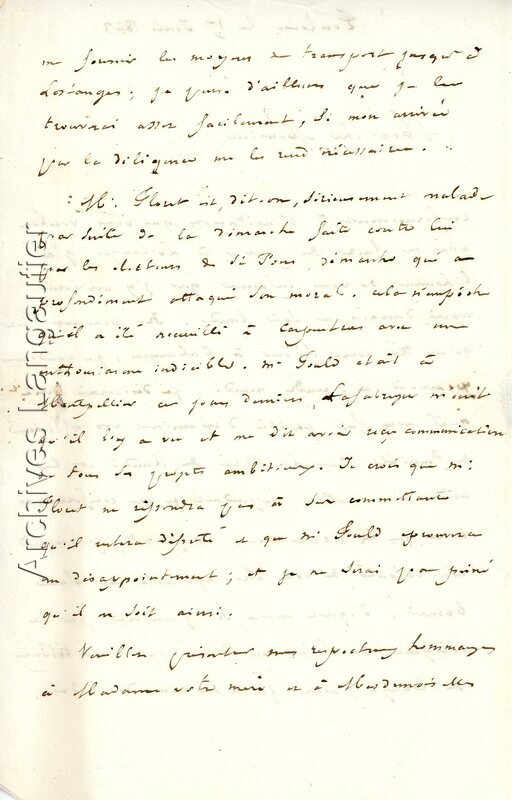 me fournir les moyens de transport jusqu'à
Lostanges; je pense d'ailleurs que je les
trouverai assez facilement, si mon arrivée
par la diligence me les rend nécessaires.
Mr. Floret est, dit-on, sérieusement malade
par suite de la démarche faite contre lui
par les électeurs de St Pons, démarche qui a
profondément attaqué son moral. cela n'empêche
qu'il a été recueilli à Carpentras avec un
enthousiasme indicible. Mr Fould était à
Montpellier ces jours derniers, m'écrit
qu'il l'y a vu et me dit avoir reçu communication
de tous ses projets ambitieux. Je crois que Mr.
Floret ne répondra pas à ses commettants
qu'il restera député et que Mr Fould éprouvera
un désappointement; et je ne serai pas peiné
qu'il en soit ainsi.
Veuillez présenter mes respectueux hommages
à Madame votre mère et à Mesdemoiselles
Archives Manuscrites